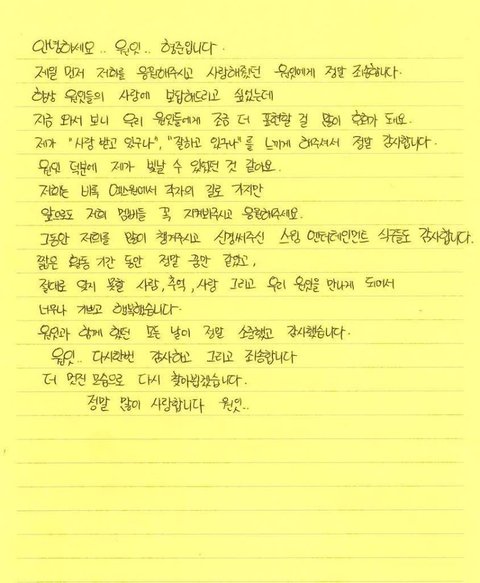 안녕하세요.. 원잇.. 형준입니다.
제일 먼저 저희를 응원해주시고 사랑해줬던 원잇에게 정말 죄송합니다.
항상 원잇들의 사랑에 보답해드리고 싶었는데
지금 와서 보니 우리 원잇들에게 조금 더 표현할 걸 많이 후회가 돼요.
제가 "사랑 받고 있구나", "잘하고 있구나"를 느끼게 해주셔서 정말 감사합니다.
원잇 덕분에 제가 빛날 수 있었던 것 같아요.
저희는 비록 엑스원에서 각자의 길로 가지만
앞으로도 저희 멤버들 꼭 지켜봐주시고 응원해주세요.
그동안 저희를 많이 챙겨주시고 신경써주신 스윙 엔터테인먼트 식구들도 감사합니다.
짧은 활동 기간 동안 정말 꿈만 같았고,
절대로 잊지 못할 사랑, 추억, 사랑 그리고 우리 원잇을 만나게 되어서
너무나 기쁘고 행복했습니다.
원잇과 함께 했던 모든 날이 정말 소중했고 감사했습니다.
원잇.. 다시한번 감사하고 그리고 죄송합니다
더 멋진 모습으로 다시 찾아뵙겠습니다.
정말 많이 사랑합니다 원잇..